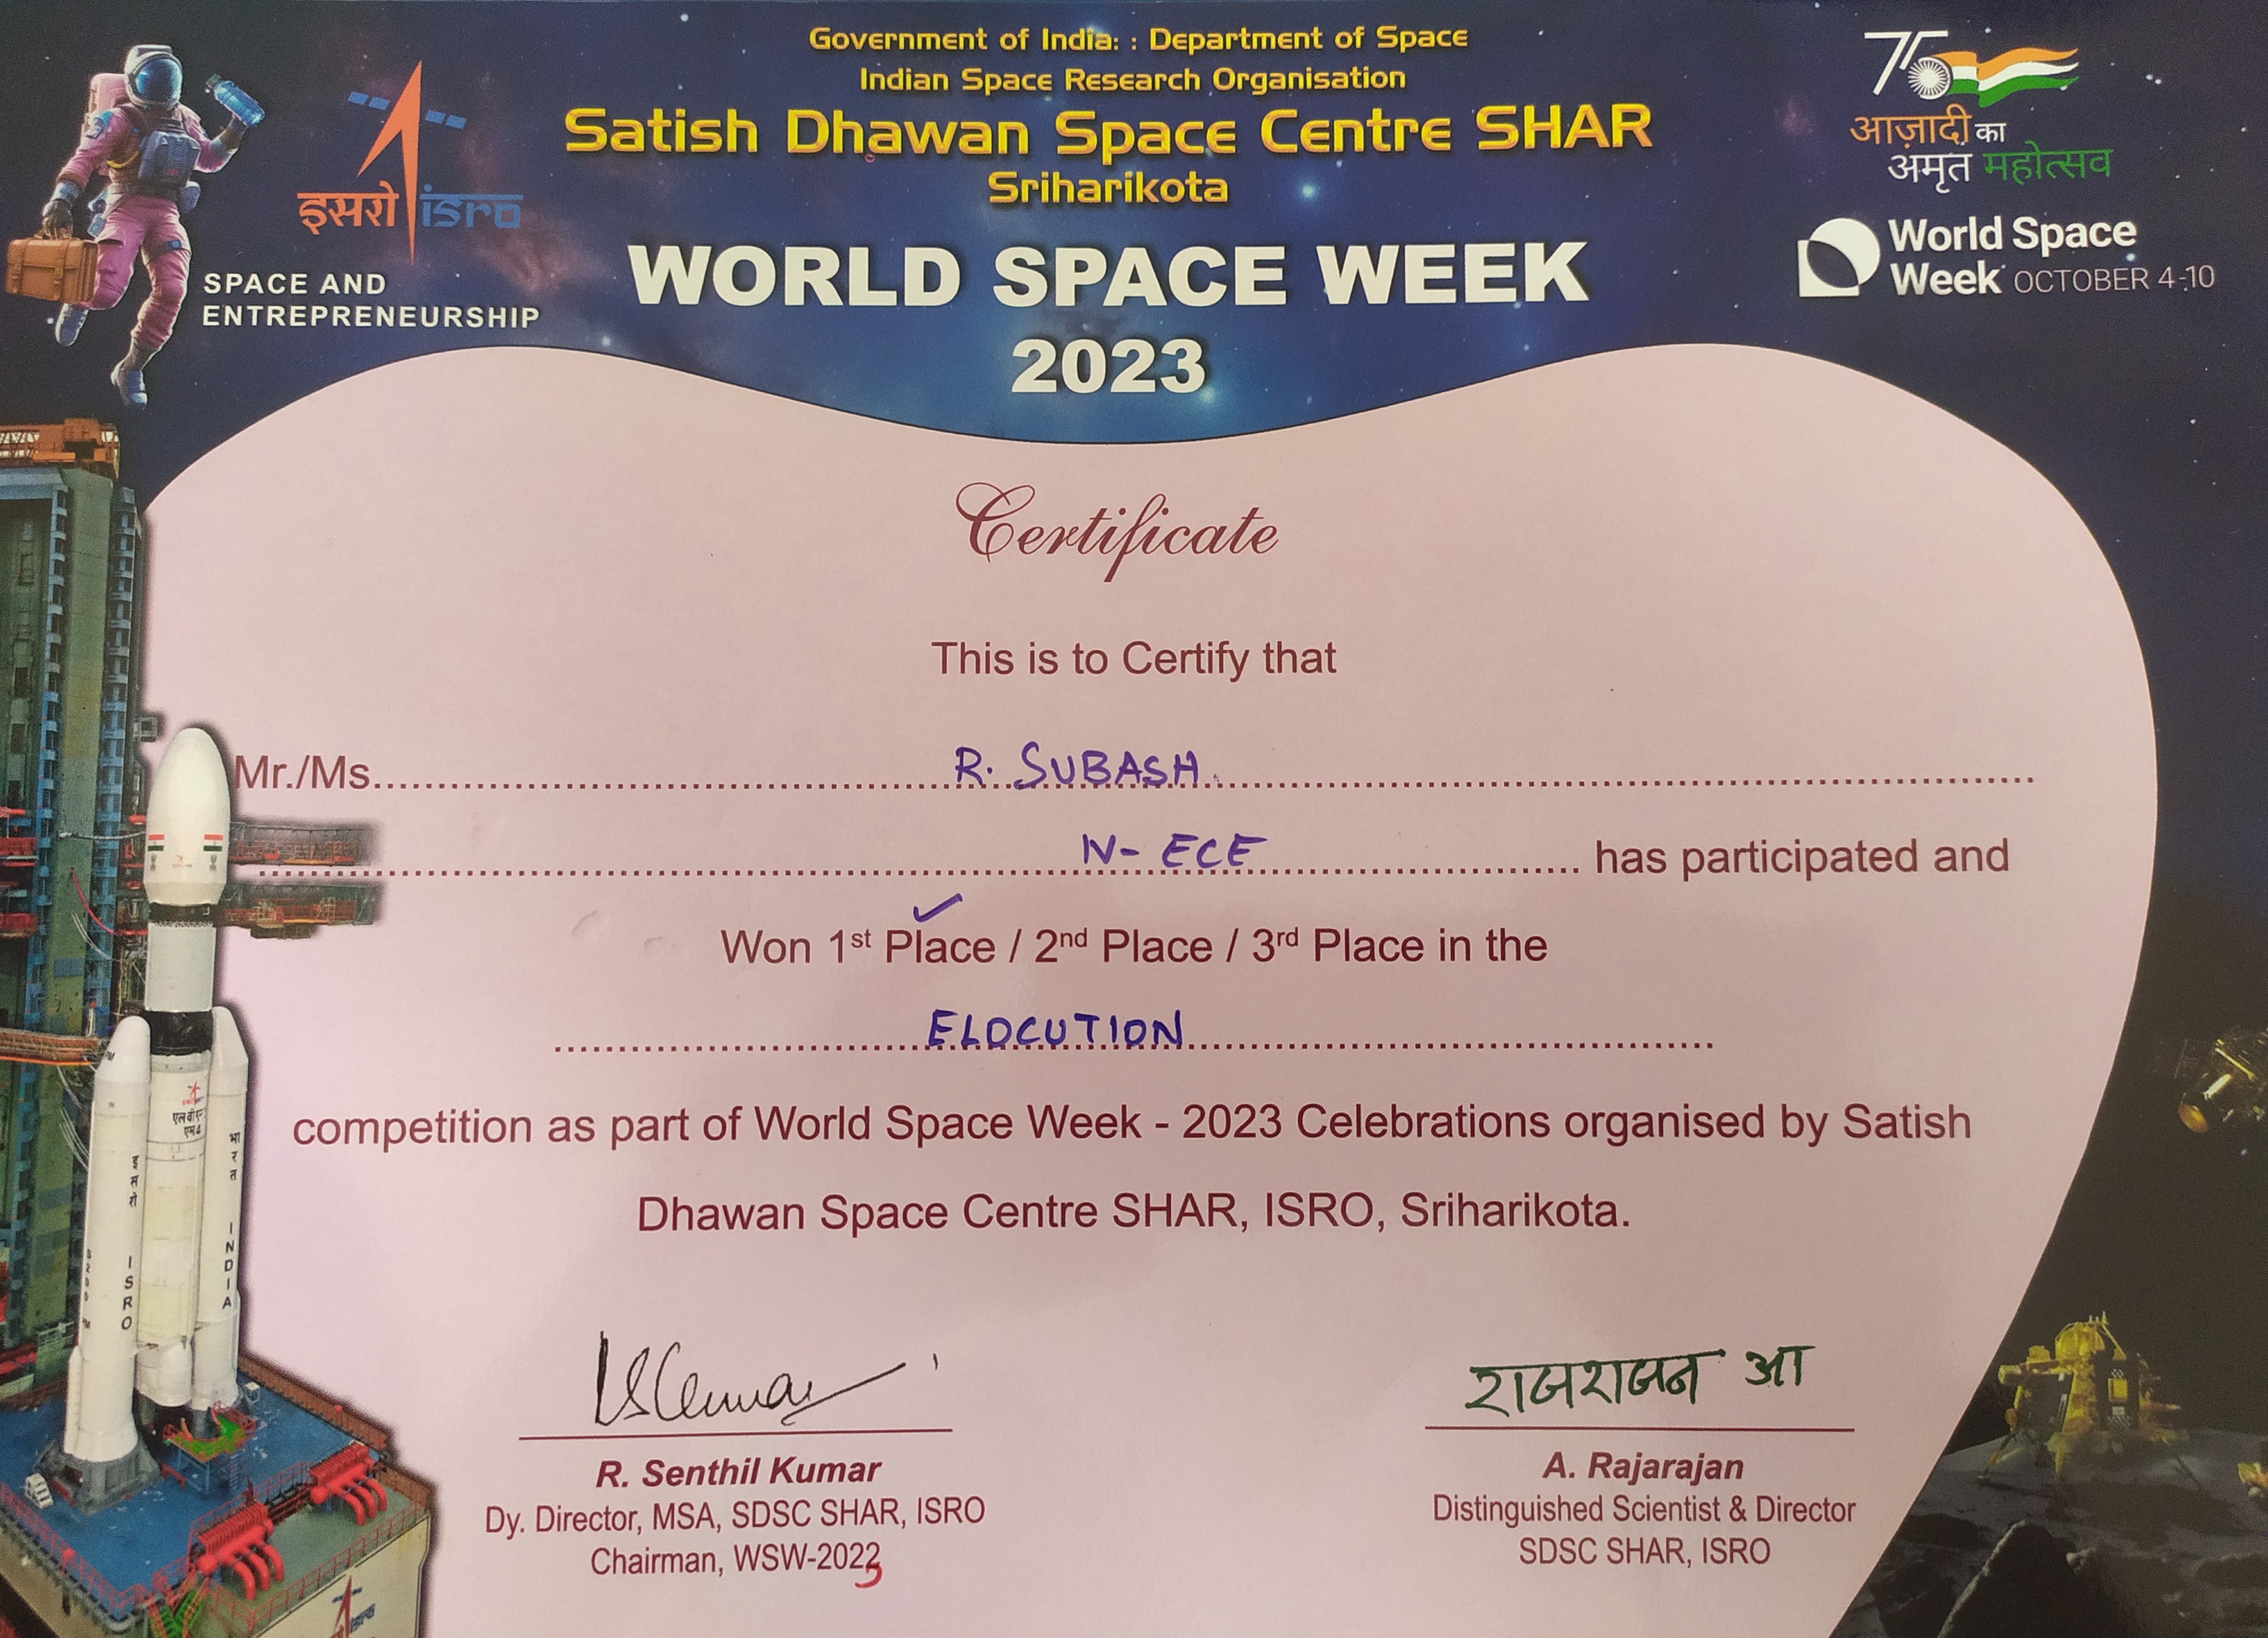 Government of India: : Department of Space
Indian Space Research Organisation
Satish Dhawan Space Centre SHAR
Sriharikota
इसरो isro
SPACE AND
ENTREPRENEURSHIP
WORLD SPACE WEEK
2023
75
आज़ादी का
अमृत महोत्सव
World Space
Week OCTOBER 4-10
Certificate
This is to Certify that
Mr./Ms. R. SUBASH
IV- ECE has participated and
Won 1st Place / 2nd Place / 3rd Place in the
ELOCUTION
competition as part of World Space Week - 2023 Celebrations organised by Satish
Dhawan Space Centre SHAR, ISRO, Sriharikota.
इसरो
ISRO
भारत
INDIA
राजराजन आ
R. Senthil Kumar
Dy. Director, MSA, SDSC SHAR, ISRO
Chairman, WSW-2023
A. Rajarajan
Distinguished Scientist & Director
SDSC SHAR, ISRO